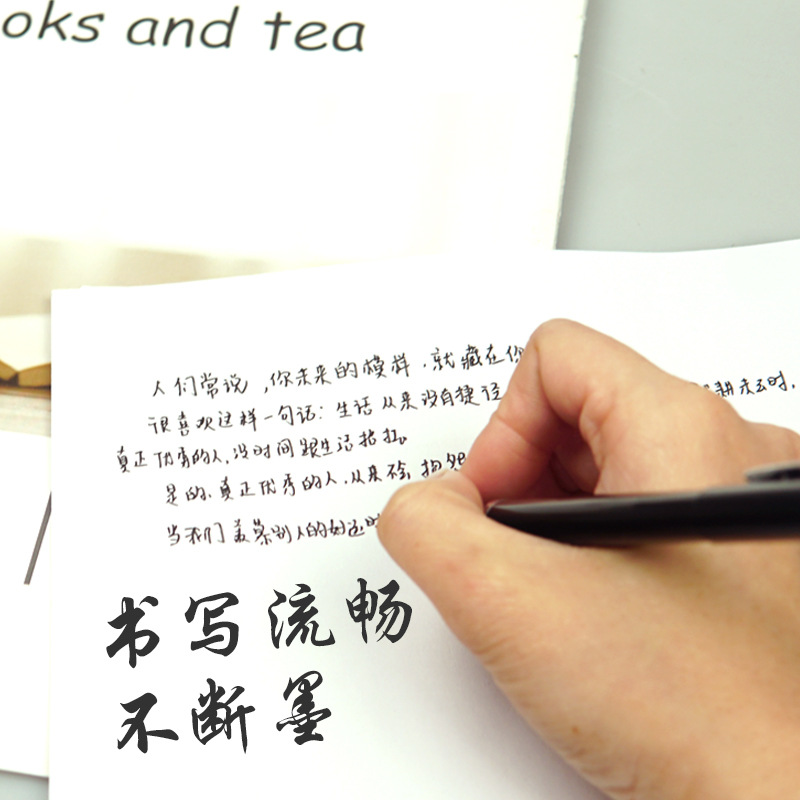 oks and tea
人们常说,你未来的模样,就藏在你
很喜欢这样一句话:生活从来没有捷径
耕耘时,
真正优秀的人,没时间跟生活拈扯。
是的,真正优秀的人,从来不会抱怨
当我们羡慕别人的好运时
书写流畅
不断墨